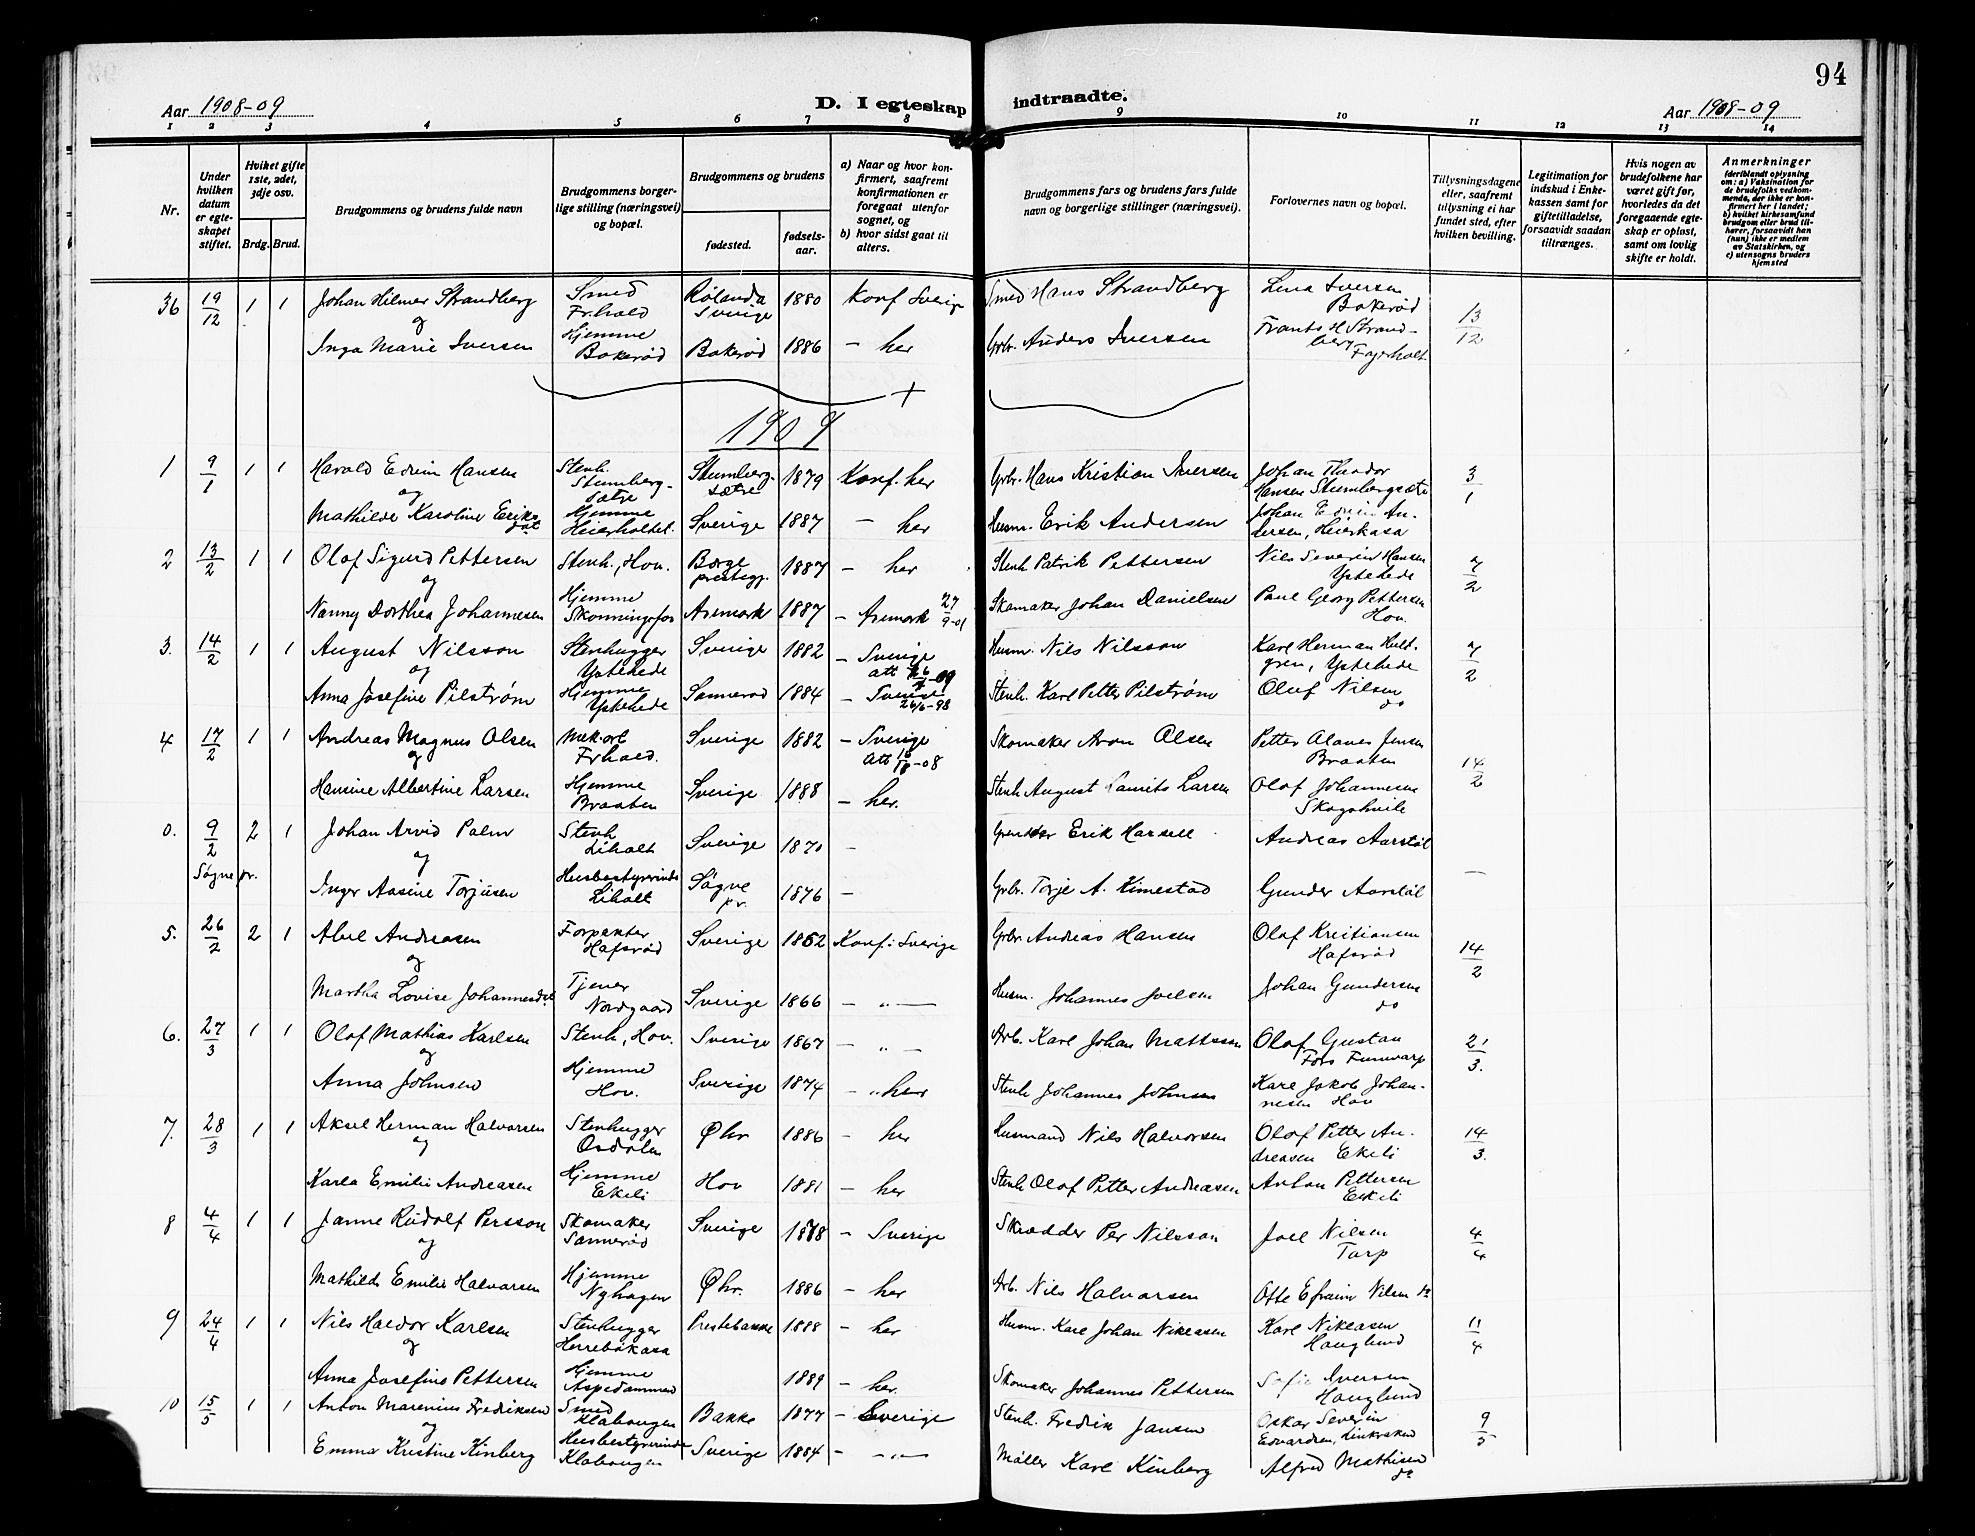 94
Aar 1908-09
D. I egteskap indtraadte.
Aar 1908-09
1 2 3 4 5 6 7 8 9 10 11 12 13 14
Nr.
Under hvilken datum er egteskapet stiftet.
Hvilket gifte 1ste, 2det, 3dje osv.
Brdg. Brud.
Brudgommens og brudens fulde navn
Brudgommens borgerlige stilling (næringsvei) og bopæl.
Brudgommens og brudens
fødested.
fødselsaar.
a) Naar og hvor konfirmert, saafremt konfirmationen er foregaat utenfor sognet, og
b) hvor sidst gaat til alters.
Brudgommens fars og brudens fars fulde navn og borgerlige stillinger (næringsvei).
Forlovernes navn og bopæl.
Tillysningsdagene eller, saafremt tillysning ei har fundet sted, efter hvilken bevilling.
Legitimation for indskud i Enkekassen samt for giftetilladelse, forsaavidt saadan tiltrænges.
Hvis nogen av brudefolkene har været gift før, hvorledes da det foregaaende egteskap er opløst, samt om lovlig skifte er holdt.
Anmerkninger (deriblandt oplysning om: a) Vaksination for de brudefolks vedkommende, der ikke er konfirmert her i landet; b) hvilket kirkesamfund brudgom eller brud tilhører, forsaavidt han (hun) ikke er medlem av Statskirken, og c) utensogns bruders hjemsted
36 19/12 1 1 Johan Hilmer Strandberg Smed Fr.hald Rølanda Sverige 1880 Konf Sverige Smed Hans Strandberg Lina Iversen Bakerød 13/12
og
Inga Marie Iversen Hjemme Bakerød Bakerød 1886 - her Gbr. Anders Iversen Frants H Strandberg
1909
1 9/1 1 1 Harald Edvin Hansen Stenh. Stumbergsætre Stumbergsætre 1879 Konf. her Gbr. Hans Kristian Iversen Johan Theodor Hansen Stumbergsætre 3/1
og
Mathilde Karoline Eriksdat Hjemme Heierholtet Sverige 1887 - her Husm. Erik Andersen Johan Edvin Andersen, Heierkasa
2 13/2 1 1 Olaf Sigurd Pettersen Stenh., Hov. Borge prestegj. 1887 - her Stenh Patrik Pettersen Nils Severin Hansen Ystehede 7/2
og
Nanny Dorthea Johannesen Hjemme Skonningsfos Aremark 1887 - Aremark 27/9-01 Skomaker Johan Danielsen Paul Georg Pettersen Hov.
3. 14/2 1 1 August Nilsson Stenhugger Ystehede Sverige 1882 - Sverige Husm. Nils Nilsson Karl Herman Hultgren, Ystehede 7/2
og
Anna Josefine Pilstrøm Hjemme Ystehede Sannerød 1884 - Sverige 26/6-98 Stenh. Karl Petter Pilstrøm Oluf Nilsen do
4 17/2 1 1 Andreas Magnus Olsen Mek arb Fr.hald. Sverige 1882 - Sverige Skomaker Aron Olsen Petter Alaves Jensen Braaten 14/2
og
Hansine Albertine Larsen Hjemme Braaten Sverige 1888 - her. Stenh August Laurits Larsen Olaf Johannesen Skogshvile
0. 9/2 2 1 Johan Arvid Palm Stenh Liholt Sverige 1870 - Erik Andreas Aarstøl
Søgne pr.
og
Inger Aasine Torjusen Husbestyrerinde Liholt Søgne pr. 1876 - Gbr. Torje A. Kimestad Gunder Aarstøl -
5. 26/2 2 1 Abel Andreasen Forpakter Hafsrød Sverige 1862 Konf: Sverige Gbr. Andreas Hansen Olaf Kristiansen Hafsrød 14/2
og
Martha Lovise Johannesdat Tjener Nordgaard Sverige 1866 - " - Husm. Johannes Joelsen Johan Gundersen do
6. 27/3 1 1 Olaf Mathias Karlsen Stenh, Hov. Sverige 1867 - " - Arb. Karl Johan Mattsson Olaf Gustav Fors 21/3.
og
Anna Johnsen Hjemme Hov. Sverige 1874 - " her Stenh Johannes Johnsen Karl Jakob Johannesen Hov
7. 28/3 1 1 Aksel Herman Halvorsen Stenhugger Øhr 1886 - her Husmand Nils Halvorsen Olaf Petter Andreasen Ekeli 14/3.
og
Karla Emilie Andreasen Hjemme Ekeli Hov 1881 - her Stenh Olaf Petter Andreasen Anton Pettersen Ekeli
8 4/4 1 1 Janne Rudolf Persson Skomaker Sannerød Sverige 1878 - Sverige Skrædder Per Nilsson Joel Nilsen Torp 4/4
og
Mathilde Emilie Halvorsen Hjemme Nyhagen Øhr. 1886 - her Arb. Nils Halvorsen Otto Efraim Nilsen do
9 24/4 1 1 Nils Haldor Karlsen Stenhugger Herrebøkasa Prestebakke 1888 - her Husm. Karl Johan Nikeasen Karl Nikeasen Houglund 11/4
og
Anna Josefine Pettersen Hjemme Aspedammen 1889 - her. Skomaker Johannes Pettersen Sofie Iversen Hauglund
10 15/5 1 1 Anton Marenius Fredriksen Smed Klabougen Bakke 1877 - Sverige Stenh. Fredrik Jansen Oskar Severin Edvardsen, 9/5
og
Emma Kristine Kinberg Husbestyrerinde Klabougen Sverige 1884 - " - Møller Karl Kinberg Alfred Mathisen do